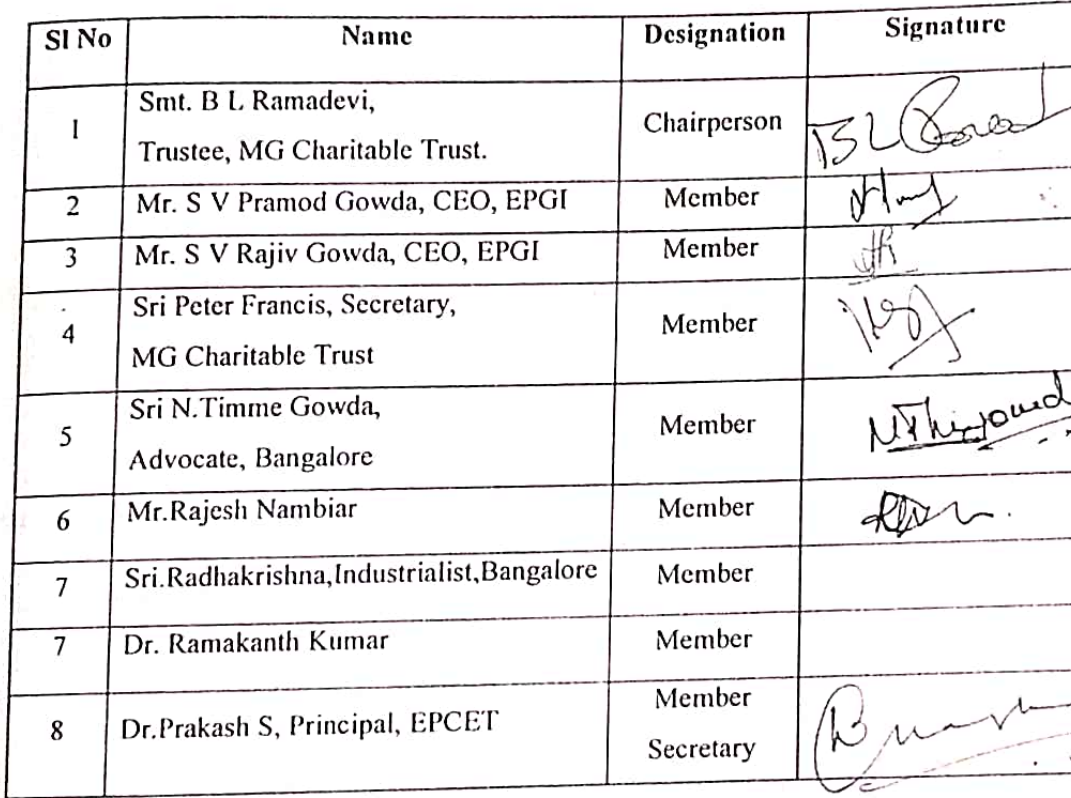 Sl No Name Designation Signature
1 Smt. B L Ramadevi,
Trustee, MG Charitable Trust. Chairperson
2 Mr. S V Pramod Gowda, CEO, EPGI Member
3 Mr. S V Rajiv Gowda, CEO, EPGI Member
4 Sri Peter Francis, Secretary,
MG Charitable Trust Member
5 Sri N.Timme Gowda,
Advocate, Bangalore Member
6 Mr.Rajesh Nambiar Member
7 Sri.Radhakrishna,Industrialist,Bangalore Member
7 Dr. Ramakanth Kumar Member
8 Dr.Prakash S, Principal, EPCET Member
Secretary